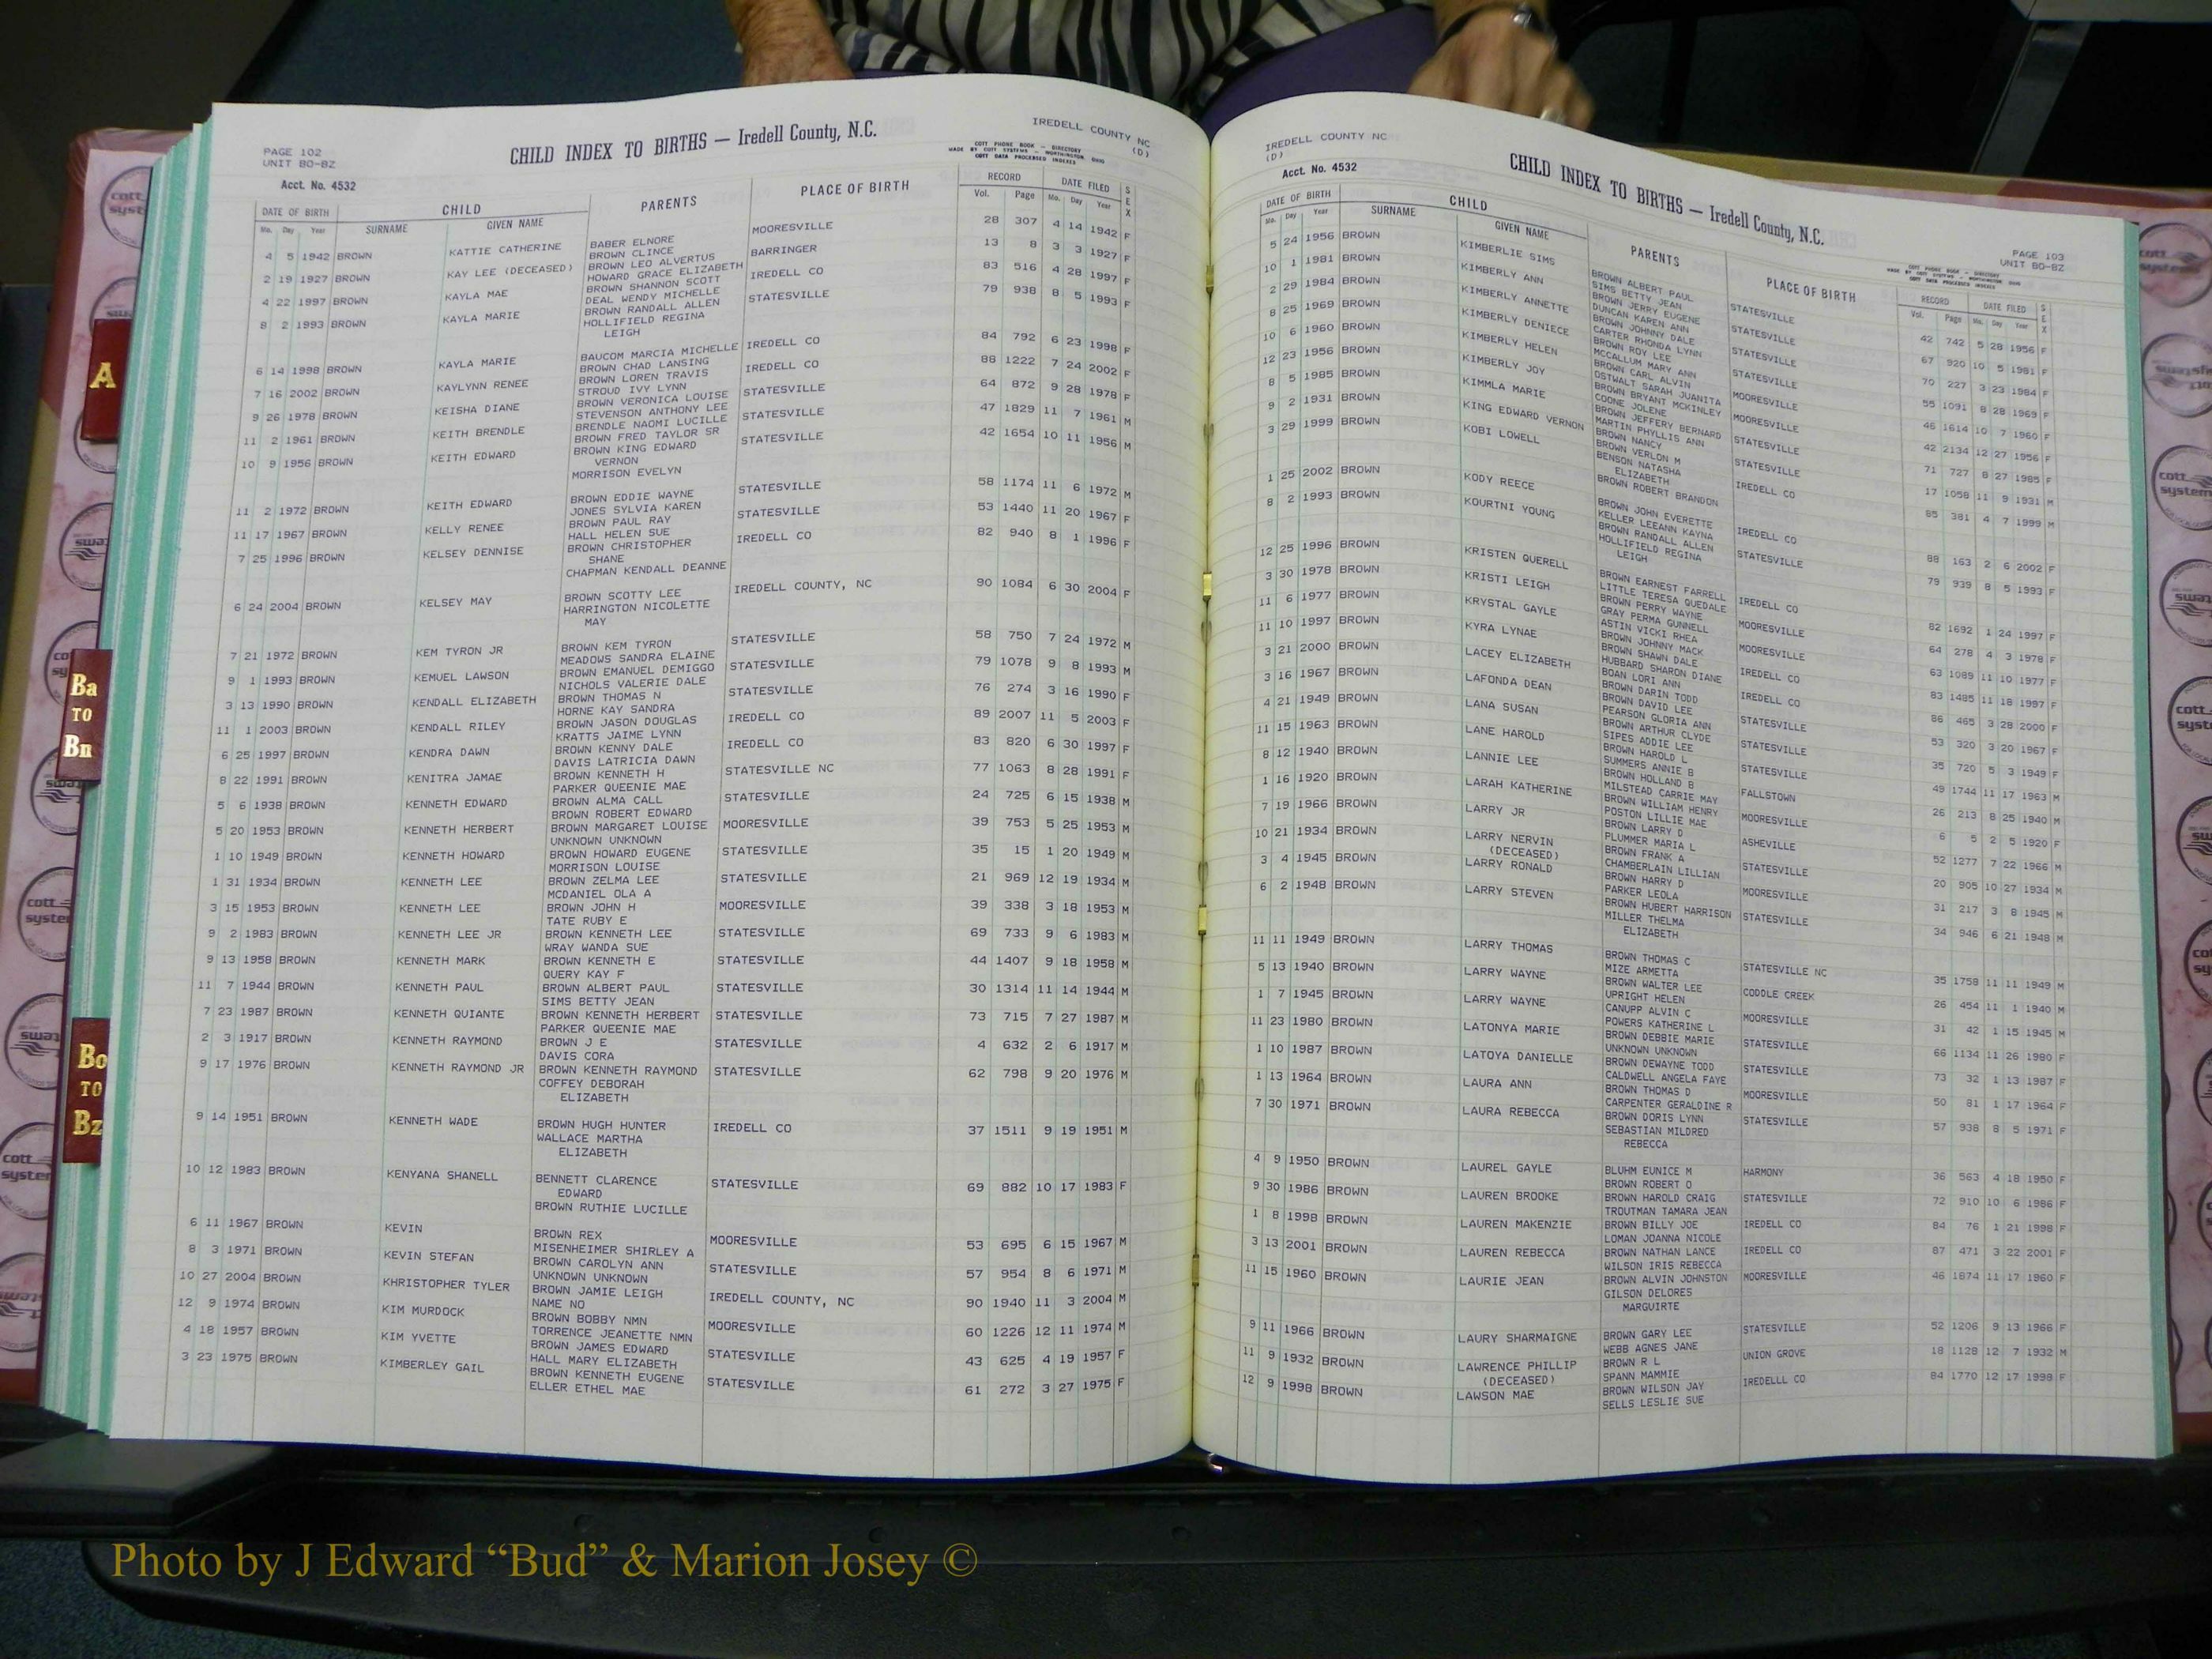 PAGE 102
UNIT BO-BZ
CHILD INDEX TO BIRTHS — Iredell County, N.C.
IREDELL COUNTY NC
(D)
COTT PHONE BOOK — DIRECTORY
MADE BY COTT SYSTEMS — WORTHINGTON, OHIO
COTT DATA PROCESSED INDEXES
Acct. No. 4532
DATE OF BIRTH CHILD PARENTS PLACE OF BIRTH RECORD DATE FILED SEX
Mo. Day Year SURNAME GIVEN NAME Vol. Page Mo. Day Year
4 5 1942 BROWN KATTIE CATHERINE BABER ELNORE MOORESVILLE 28 307 4 14 1942 F
BROWN CLINCE
2 19 1927 BROWN KAY LEE (DECEASED) BROWN LEO ALVERTUS BARRINGER 13 8 3 3 1927 F
HOWARD GRACE ELIZABETH
4 22 1997 BROWN KAYLA MAE BROWN SHANNON SCOTT IREDELL CO 83 516 4 28 1997 F
DEAL WENDY MICHELLE
8 2 1993 BROWN KAYLA MARIE BROWN RANDALL ALLEN STATESVILLE 79 938 8 5 1993 F
HOLLIFIELD REGINA
LEIGH
6 14 1998 BROWN KAYLA MARIE BAUCOM MARCIA MICHELLE IREDELL CO 84 792 6 23 1998 F
BROWN CHAD LANSING
7 16 2002 BROWN KAYLYNN RENEE BROWN LOREN TRAVIS IREDELL CO 88 1222 7 24 2002 F
STROUD IVY LYNN
9 26 1978 BROWN KEISHA DIANE BROWN VERONICA LOUISE STATESVILLE 64 872 9 28 1978 F
STEVENSON ANTHONY LEE
11 2 1961 BROWN KEITH BRENDLE BRENDLE NAOMI LUCILLE STATESVILLE 47 1829 11 7 1961 M
BROWN FRED TAYLOR SR
10 9 1956 BROWN KEITH EDWARD BROWN KING EDWARD STATESVILLE 42 1654 10 11 1956 M
VERNON
MORRISON EVELYN
11 2 1972 BROWN KEITH EDWARD BROWN EDDIE WAYNE STATESVILLE 58 1174 11 6 1972 M
JONES SYLVIA KAREN
11 17 1967 BROWN KELLY RENEE BROWN PAUL RAY STATESVILLE 53 1440 11 20 1967 F
HALL HELEN SUE
7 25 1996 BROWN KELSEY DENNISE BROWN CHRISTOPHER IREDELL CO 82 940 8 1 1996 F
SHANE
CHAPMAN KENDALL DEANNE
6 24 2004 BROWN KELSEY MAY BROWN SCOTTY LEE IREDELL COUNTY, NC 90 1084 6 30 2004 F
HARRINGTON NICOLETTE
MAY
7 21 1972 BROWN KEM TYRON JR BROWN KEM TYRON STATESVILLE 58 750 7 24 1972 M
MEADOWS SANDRA ELAINE
9 1 1993 BROWN KEMUEL LAWSON BROWN EMANUEL DEMIGGO STATESVILLE 79 1078 9 8 1993 M
NICHOLS VALERIE DALE
3 13 1990 BROWN KENDALL ELIZABETH BROWN THOMAS N STATESVILLE 76 274 3 16 1990 F
HORNE KAY SANDRA
11 1 2003 BROWN KENDALL RILEY BROWN JASON DOUGLAS IREDELL CO 89 2007 11 5 2003 F
KRATTS JAIME LYNN
6 25 1997 BROWN KENDRA DAWN BROWN KENNY DALE IREDELL CO 83 820 6 30 1997 F
DAVIS LATRICIA DAWN
8 22 1991 BROWN KENITRA JAMAE BROWN KENNETH H STATESVILLE NC 77 1063 8 28 1991 F
PARKER QUEENIE MAE
5 6 1938 BROWN KENNETH EDWARD BROWN ALMA CALL STATESVILLE 24 725 6 15 1938 M
BROWN ROBERT EDWARD
5 20 1953 BROWN KENNETH HERBERT BROWN MARGARET LOUISE MOORESVILLE 39 753 5 25 1953 M
UNKNOWN UNKNOWN
1 10 1949 BROWN KENNETH HOWARD BROWN HOWARD EUGENE STATESVILLE 35 15 1 20 1949 M
MORRISON LOUISE
1 31 1934 BROWN KENNETH LEE BROWN ZELMA LEE STATESVILLE 21 969 12 19 1934 M
MCDANIEL OLA A
3 15 1953 BROWN KENNETH LEE BROWN JOHN H MOORESVILLE 39 338 3 18 1953 M
TATE RUBY E
9 2 1983 BROWN KENNETH LEE JR BROWN KENNETH LEE STATESVILLE 69 733 9 6 1983 M
WRAY WANDA SUE
9 13 1958 BROWN KENNETH MARK BROWN KENNETH E STATESVILLE 44 1407 9 18 1958 M
QUERY KAY F
11 7 1944 BROWN KENNETH PAUL BROWN ALBERT PAUL STATESVILLE 30 1314 11 14 1944 M
SIMS BETTY JEAN
7 23 1987 BROWN KENNETH QUIANTE BROWN KENNETH HERBERT STATESVILLE 73 715 7 27 1987 M
PARKER QUEENIE MAE
2 3 1917 BROWN KENNETH RAYMOND BROWN J E STATESVILLE 4 632 2 6 1917 M
DAVIS CORA
9 17 1976 BROWN KENNETH RAYMOND JR BROWN KENNETH RAYMOND STATESVILLE 62 798 9 20 1976 M
COFFEY DEBORAH
ELIZABETH
9 14 1951 BROWN KENNETH WADE BROWN HUGH HUNTER IREDELL CO 37 1511 9 19 1951 M
WALLACE MARTHA
ELIZABETH
10 12 1983 BROWN KENYANA SHANELL BENNETT CLARENCE STATESVILLE 69 882 10 17 1983 F
EDWARD
BROWN RUTHIE LUCILLE
6 11 1967 BROWN KEVIN BROWN REX MOORESVILLE 53 695 6 15 1967 M
MISENHEIMER SHIRLEY A
8 3 1971 BROWN KEVIN STEFAN BROWN CAROLYN ANN STATESVILLE 57 954 8 6 1971 M
UNKNOWN UNKNOWN
10 27 2004 BROWN KHRISTOPHER TYLER BROWN JAMIE LEIGH IREDELL COUNTY, NC 90 1940 11 3 2004 M
NAME NO
12 9 1974 BROWN KIM MURDOCK BROWN BOBBY NMN MOORESVILLE 60 1226 12 11 1974 M
TORRENCE JEANETTE NMN
4 18 1957 BROWN KIM YVETTE BROWN JAMES EDWARD STATESVILLE 43 625 4 19 1957 F
HALL MARY ELIZABETH
3 23 1975 BROWN KIMBERLEY GAIL BROWN KENNETH EUGENE STATESVILLE 61 272 3 27 1975 F
ELLER ETHEL MAE
IREDELL COUNTY NC
(D)
Acct. No. 4532
CHILD INDEX TO BIRTHS — Iredell County, N.C.
PAGE 103
UNIT BO-BZ
COTT PHONE BOOK — DIRECTORY
MADE BY COTT SYSTEMS — WORTHINGTON, OHIO
COTT DATA PROCESSED INDEXES
DATE OF BIRTH CHILD PARENTS PLACE OF BIRTH RECORD DATE FILED SEX
Mo. Day Year SURNAME GIVEN NAME Vol. Page Mo. Day Year
5 24 1956 BROWN KIMBERLIE SIMS BROWN ALBERT PAUL STATESVILLE 42 742 5 28 1956 F
SIMS BETTY JEAN
10 1 1981 BROWN KIMBERLY ANN BROWN JERRY EUGENE STATESVILLE 67 920 10 5 1981 F
DUNCAN KAREN ANN
2 29 1984 BROWN KIMBERLY ANNETTE BROWN JOHNNY DALE STATESVILLE 70 227 3 23 1984 F
CARTER RHONDA LYNN
8 25 1969 BROWN KIMBERLY DENIECE BROWN ROY LEE STATESVILLE 55 1091 8 28 1969 F
MCCALLUM MARY ANN
10 6 1960 BROWN KIMBERLY HELEN BROWN CARL ALVIN MOORESVILLE 46 1614 10 7 1960 F
OSTWALT SARAH JUANITA
12 23 1956 BROWN KIMBERLY JOY BROWN BRYANT MCKINLEY MOORESVILLE 42 2134 12 27 1956 F
COONE JOLENE
8 5 1985 BROWN KIMMLA MARIE BROWN JEFFERY BERNARD STATESVILLE 71 727 8 27 1985 F
MARTIN PHYLLIS ANN
9 2 1931 BROWN KING EDWARD VERNON BROWN NANCY STATESVILLE 17 1058 11 9 1931 M
BROWN VERLON M
3 29 1999 BROWN KOBI LOWELL BENSON NATASHA IREDELL CO 85 381 4 7 1999 M
ELIZABETH
BROWN ROBERT BRANDON
1 25 2002 BROWN KODY REECE BROWN JOHN EVERETTE IREDELL CO 88 163 2 6 2002 F
KELLER LEEANN KAYNA
8 2 1993 BROWN KOURTNI YOUNG BROWN RANDALL ALLEN STATESVILLE 79 939 8 5 1993 F
HOLLIFIELD REGINA
LEIGH
12 25 1996 BROWN KRISTEN QUERELL BROWN EARNEST FARRELL IREDELL CO 82 1692 1 24 1997 F
LITTLE TERESA QUEDALE
3 30 1978 BROWN KRISTI LEIGH BROWN PERRY WAYNE MOORESVILLE 64 278 4 3 1978 F
GRAY PERMA GUNNELL
11 6 1977 BROWN KRYSTAL GAYLE ASTIN VICKI RHEA MOORESVILLE 63 1089 11 10 1977 F
BROWN JOHNNY MACK
11 10 1997 BROWN KYRA LYNAE BROWN SHAWN DALE IREDELL CO 83 1485 11 18 1997 F
HUBBARD SHARON DIANE
3 21 2000 BROWN LACEY ELIZABETH BOAN LORI ANN IREDELL CO 86 465 3 28 2000 F
BROWN DARIN TODD
3 16 1967 BROWN LAFONDA DEAN BROWN DAVID LEE STATESVILLE 53 320 3 20 1967 F
PEARSON GLORIA ANN
4 21 1949 BROWN LANA SUSAN BROWN ARTHUR CLYDE STATESVILLE 35 720 5 3 1949 F
SIPES ADDIE LEE
11 15 1963 BROWN LANE HAROLD BROWN HAROLD L STATESVILLE 49 1744 11 17 1963 M
SUMMERS ANNIE B
8 12 1940 BROWN LANNIE LEE BROWN HOLLAND B FALLSTOWN 26 213 8 25 1940 M
MILSTEAD CARRIE MAY
1 16 1920 BROWN LARAH KATHERINE BROWN WILLIAM HENRY MOORESVILLE 6 5 2 5 1920 F
POSTON LILLIE MAE
7 19 1966 BROWN LARRY JR BROWN LARRY D ASHEVILLE 52 1277 7 22 1966 M
PLUMMER MARIA L
10 21 1934 BROWN LARRY NERVIN BROWN FRANK A STATESVILLE 20 905 10 27 1934 M
(DECEASED) CHAMBERLAIN LILLIAN
3 4 1945 BROWN LARRY RONALD BROWN HARRY D MOORESVILLE 31 217 3 8 1945 M
PARKER LEOLA
6 2 1948 BROWN LARRY STEVEN BROWN HUBERT HARRISON STATESVILLE 34 946 6 21 1948 M
MILLER THELMA
ELIZABETH
11 11 1949 BROWN LARRY THOMAS BROWN THOMAS C STATESVILLE NC 35 1758 11 11 1949 M
MIZE ARMETTA
5 13 1940 BROWN LARRY WAYNE BROWN WALTER LEE CODDLE CREEK 26 454 11 1 1940 M
UPRIGHT HELEN
1 7 1945 BROWN LARRY WAYNE CANUPP ALVIN C MOORESVILLE 31 42 1 15 1945 M
POWERS KATHERINE L
11 23 1980 BROWN LATONYA MARIE BROWN DEBBIE MARIE STATESVILLE 66 1134 11 26 1980 F
UNKNOWN UNKNOWN
1 10 1987 BROWN LATOYA DANIELLE BROWN DEWAYNE TODD STATESVILLE 73 32 1 13 1987 F
CALDWELL ANGELA FAYE
1 13 1964 BROWN LAURA ANN BROWN THOMAS D MOORESVILLE 50 81 1 17 1964 F
CARPENTER GERALDINE R
7 30 1971 BROWN LAURA REBECCA BROWN DORIS LYNN STATESVILLE 57 938 8 5 1971 F
SEBASTIAN MILDRED
REBECCA
4 9 1950 BROWN LAUREL GAYLE BLUHM EUNICE M HARMONY 36 563 4 18 1950 F
BROWN ROBERT O
9 30 1986 BROWN LAUREN BROOKE BROWN HAROLD CRAIG STATESVILLE 72 910 10 6 1986 F
TROUTMAN TAMARA JEAN
1 8 1998 BROWN LAUREN MAKENZIE BROWN BILLY JOE IREDELL CO 84 76 1 21 1998 F
LOMAN JOANNA NICOLE
3 13 2001 BROWN LAUREN REBECCA BROWN NATHAN LANCE IREDELL CO 87 471 3 22 2001 F
WILSON IRIS REBECCA
11 15 1960 BROWN LAURIE JEAN BROWN ALVIN JOHNSTON MOORESVILLE 46 1874 11 17 1960 F
GILSON DELORES
MARGUIRTE
9 11 1966 BROWN LAURY SHARMAIGNE BROWN GARY LEE STATESVILLE 52 1206 9 13 1966 F
WEBB AGNES JANE
11 9 1932 BROWN LAWRENCE PHILLIP BROWN R L UNION GROVE 18 1128 12 7 1932 M
(DECEASED) SPANN MAMMIE
12 9 1998 BROWN LAWSON MAE BROWN WILSON JAY IREDELLL CO 84 1770 12 17 1998 F
SELLS LESLIE SUE
A
Ba
TO
Bn
Bo
TO
Bz
Photo by J Edward “Bud” & Marion Josey ©